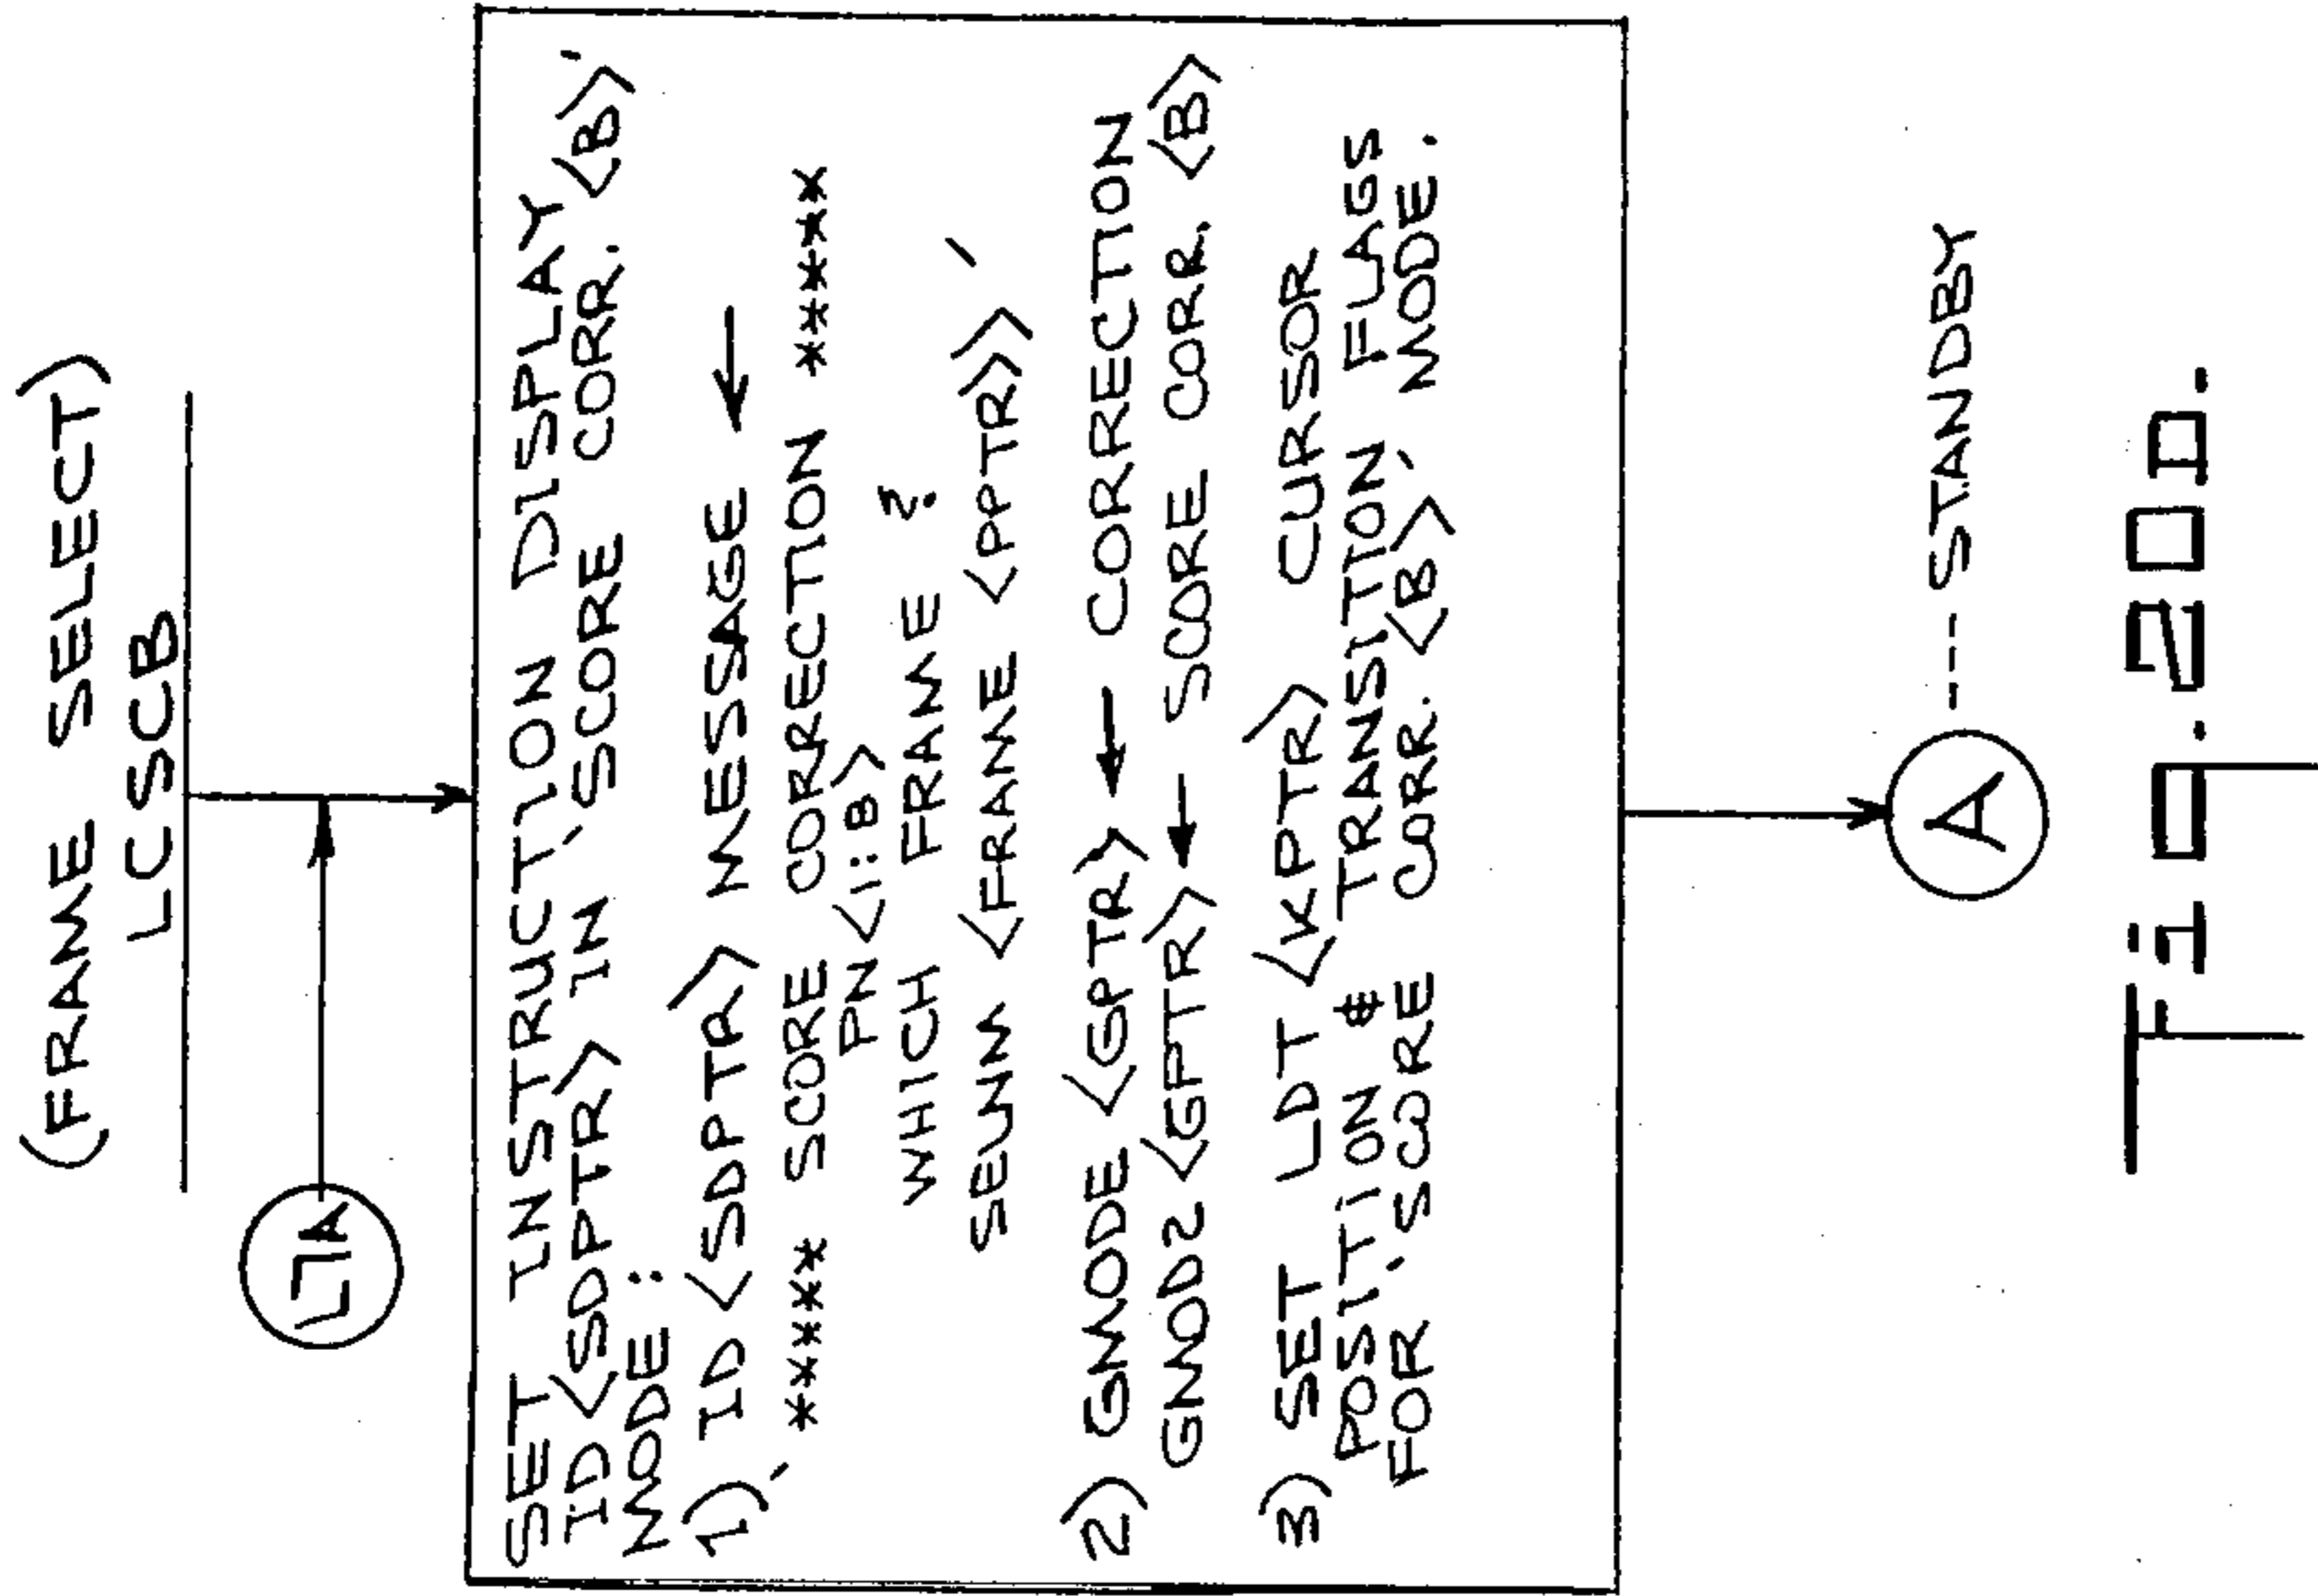 (FRAME SELECT)
LCSCB
57A
SET INSTRUCTION DISPLAY
ID <SDPTR> IN 'SCORE CORR. <B>'
MODE :
1) ID <SDPTR> MESSAGE ←
'***** SCORE CORRECTION *****
PN <1:8>
WHICH FRAME ?
SEUM <FRAME <PPTR>> '
2) GMODE <GPTR> ← CORRECTION
GMOD2 <GPTR> ← SCORE CORR. <B>
3) SET LDT <KPTR> CURSOR
POSITION & TRANSITION FLAGS
FOR 'SCORE CORR. <B>' MODE.
A --- STANDBY
Fig. 20D.